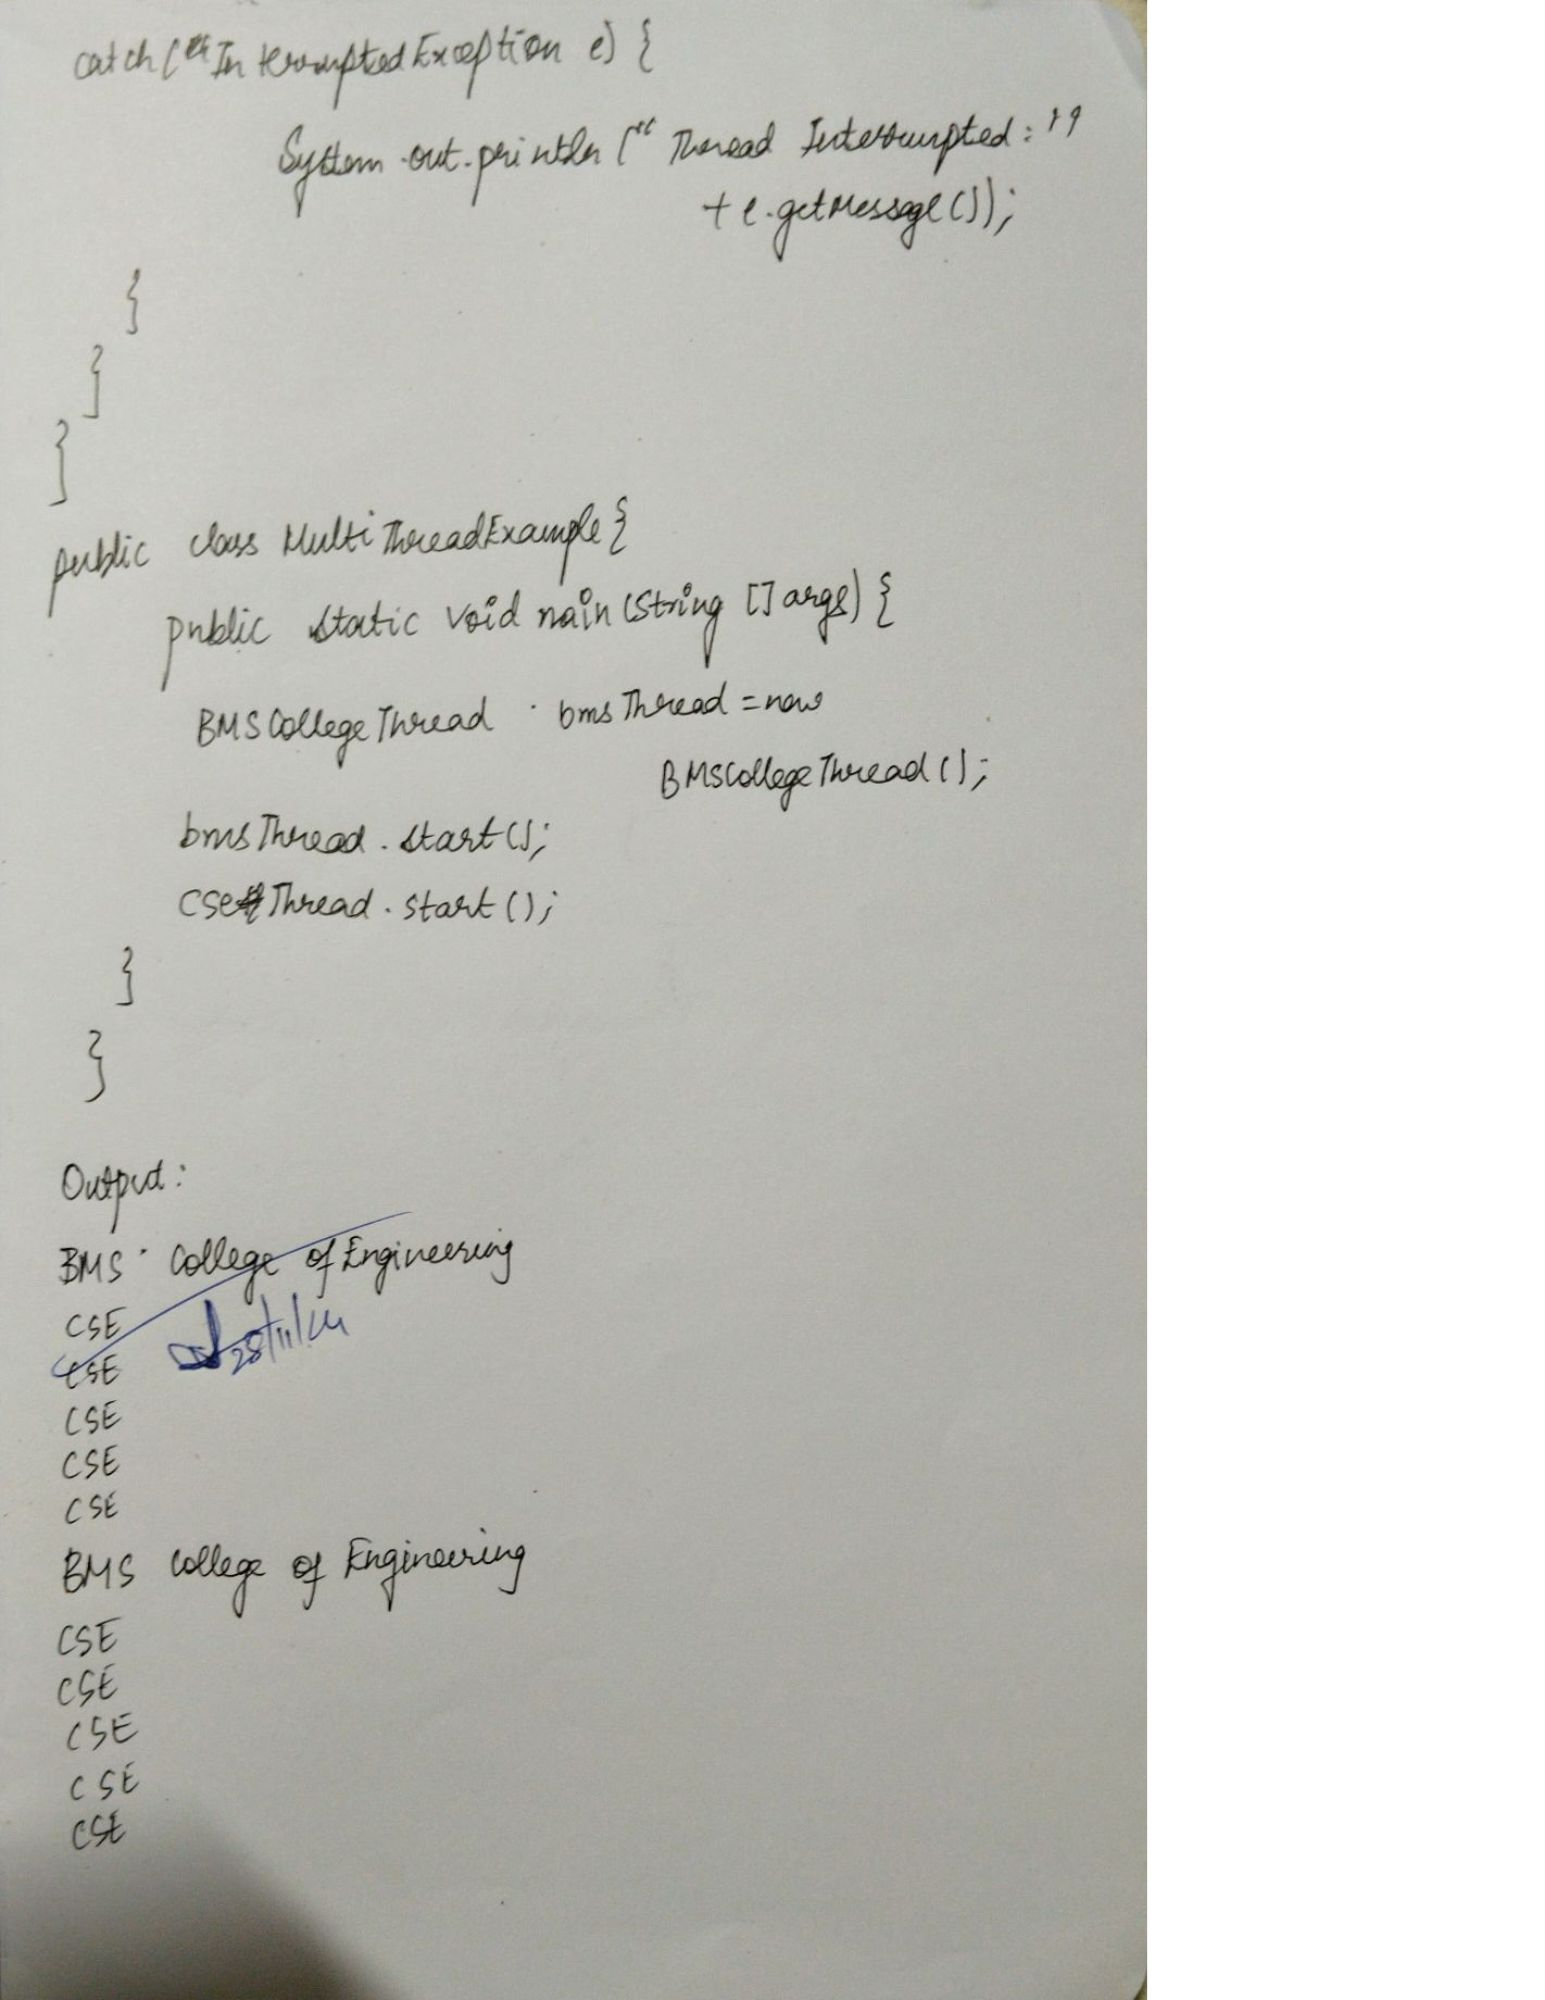 catch(InterruptedException e) {
System.out.println("Thread Interrupted: "
+ e.getMessage());
}
}
}
public class MultiThreadExample {
public static void main(String [] args) {
BMSCollegeThread bmsThread = new
BMSCollegeThread();
bmsThread.start();
cseThread.start();
}
}
Output:
BMS College of Engineering
CSE
CSE
28/11/24
CSE
CSE
CSE
BMS College of Engineering
CSE
CSE
CSE
CSE
CSE